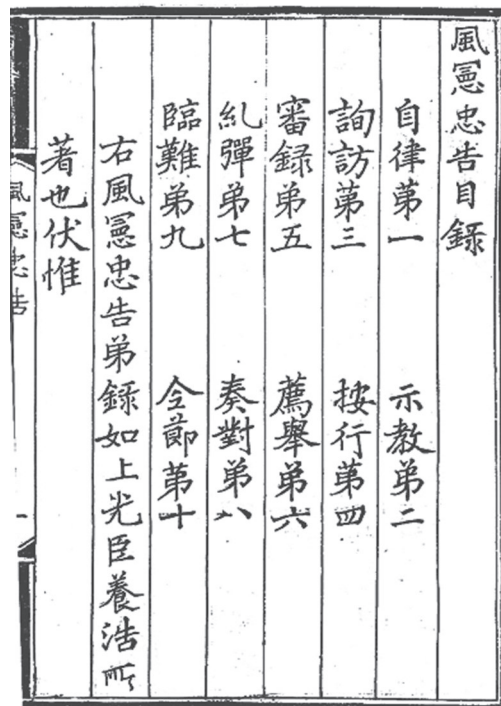 風憲忠告目錄
自律第一 示教弟二
詢訪第三 按行第四
審録弟五 薦舉弟六
糺彈弟七 奏對弟八
臨難弟九 全節第十
右風憲忠告弟録如上光臣養浩所
著也伏惟
風憲忠告
一